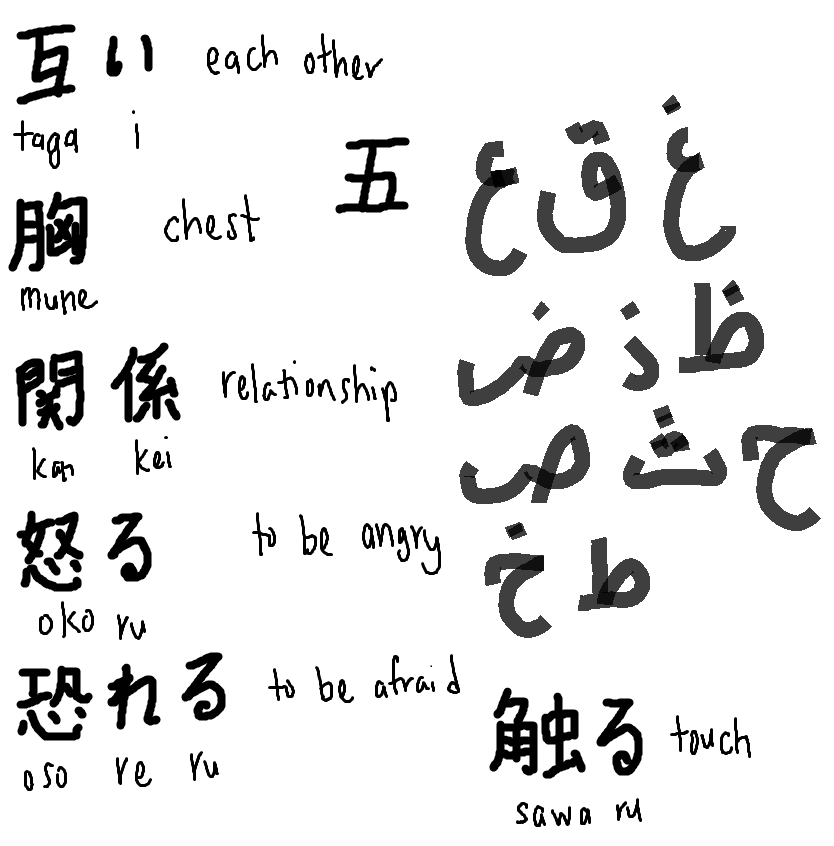 互い each other
taga i
五
胸 chest
mune
関係 relationship
kan kei
怒る to be angry
oko ru
恐れる to be afraid
oso re ru
ع ق غ
ض ذ ظ
ص ث ح
خ ط
触る touch
sawa ru